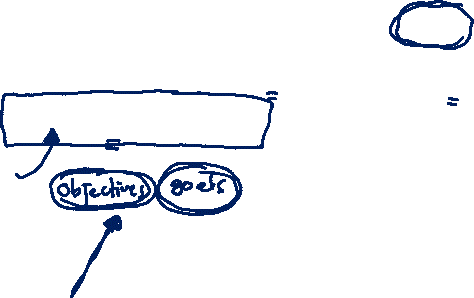 objectives goals